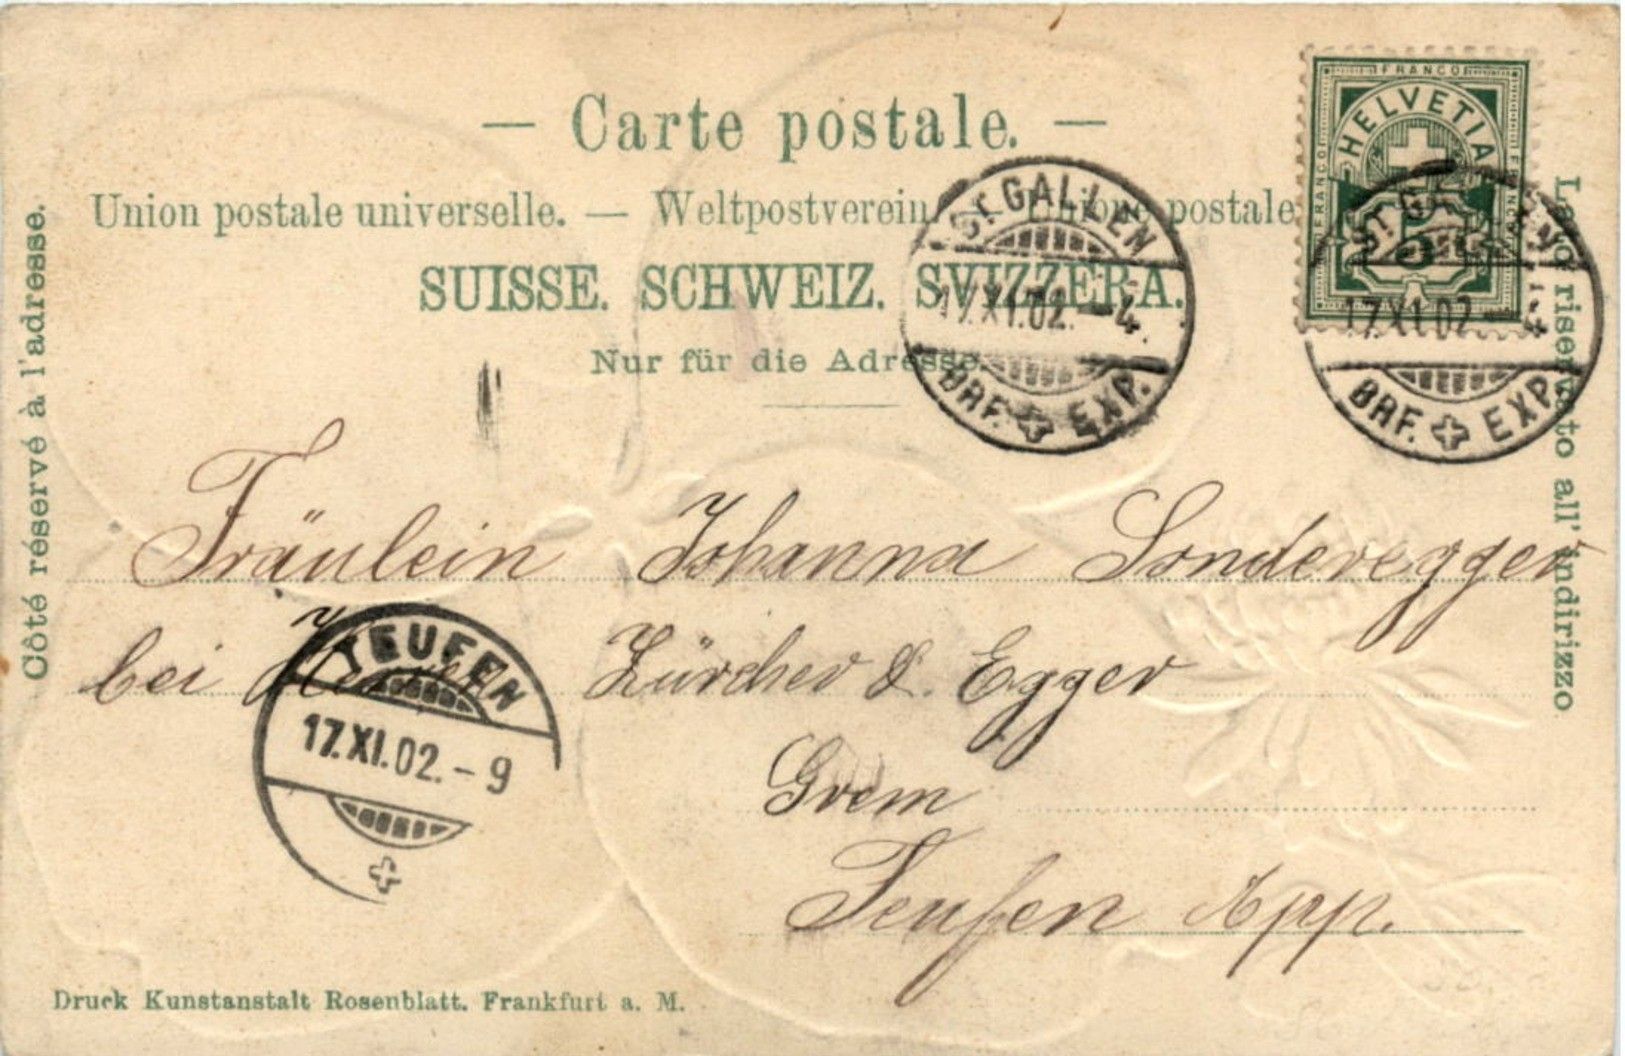 — Carte postale. —
Union postale universelle. — Weltpostverein. — Unione postale
SUISSE. SCHWEIZ. SVIZZERA.
Nur für die Adresse.
Côté réservé à l'adresse.
Lato riservato all' indirizzo.
FRANCO
HELVETIA
FRANCO
5
ST. GALLEN
17.XI.02.–4.
BRF. EXP.
ST. GALLEN
17.XI.02. 4.
BRF. EXP.
Fräulein Johanna Sonderegger
bei Zürcher & Egger
Grem
Teufen App.
TEUFEN
17.XI.02.–9
Druck Kunstanstalt Rosenblatt. Frankfurt a. M.